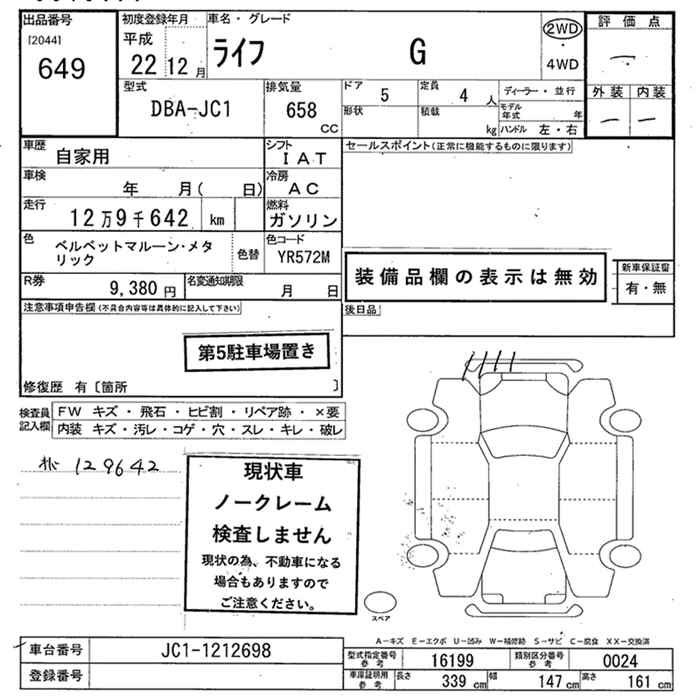 出品番号 初度登録年月 車名・グレード 評価点
[2044] 平成 ライフ G 2WD
649 22 12月 ・4WD 一
型式 排気量 ドア 5 定員 4 人 ディーラー・並行 外装 内装
DBA-JC1 658 cc 形状 積載 kg モデル年式 年 一 一
ハンドル 左・右
車歴 自家用 シフト IAT セールスポイント(正常に機能するものに限ります)
車検 年 月( 日) 冷房 AC
走行 12万9千642 km 燃料 ガソリン
色 ベルベットマルーン・メタリック 色替 色コード YR572M
装備品欄の表示は無効 新車保証書 有・無
R券 9,380円 名変通知期限 月 日
注意事項申告欄(不具合内容等は具体的に記入して下さい) 後日品
第5駐車場置き
修復歴 有〔箇所 〕
検査員記入欄 FW キズ・飛石・ヒビ割・リペア跡・×要
内装 キズ・汚レ・コゲ・穴・スレ・キレ・破レ
129642
現状車
ノークレーム
検査しません
現状の為、不動車になる
場合もありますので
ご注意ください。
スペア
A-キズ E-エクボ U-凹み W-補修跡 S-サビ C-腐食 XX-交換済
車台番号 JC1-1212698 型式指定番号 参考 16199 類別区分番号 参考 0024
登録番号 車庫証明用 参考 長さ 339 cm 幅 147 cm 高さ 161 cm